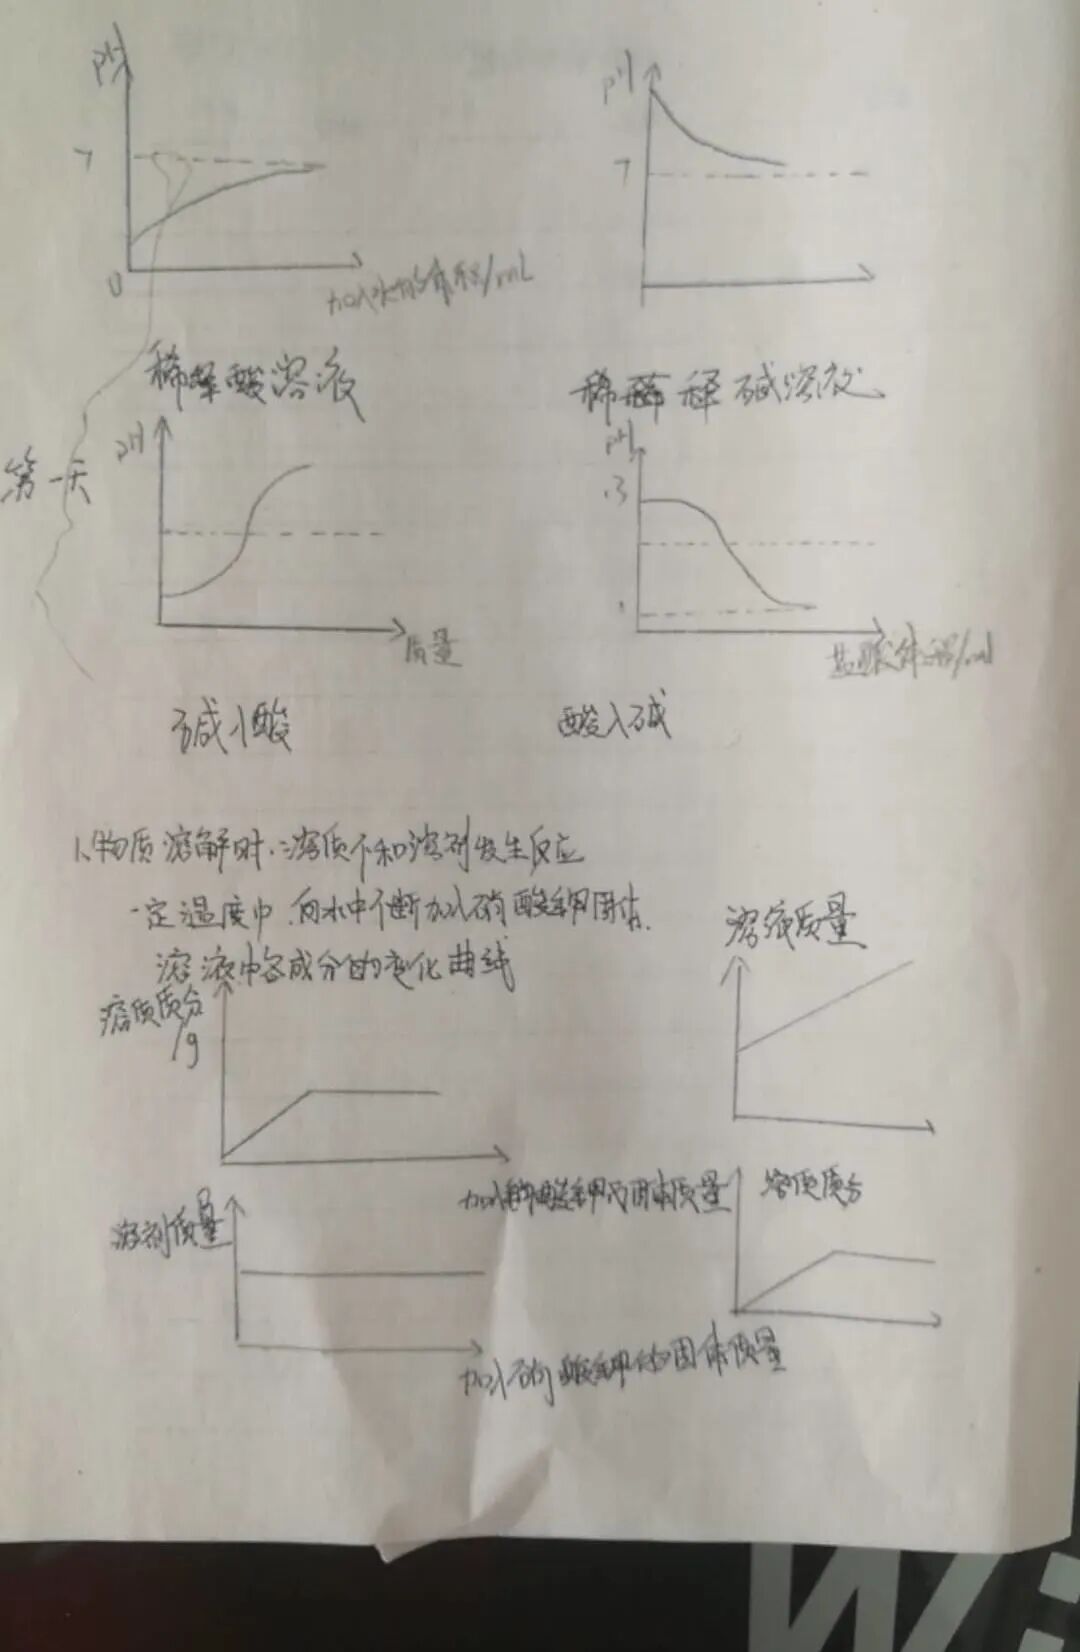 pH
pH
7
7
0
加入水的体积/mL
稀释酸溶液
稀释碱溶液
第一天
pH
pH
13
1
质量
盐酸体积/ml
碱入酸
酸入碱
1、物质溶解时,溶质不和溶剂发生反应
一定温度中,向水中不断加入硝酸钾固体,
溶液中各成分的变化曲线
溶液质量
溶质质分
/g
加入硝酸钾的固体质量
溶质质分
溶剂质量
加入硝酸钾的固体质量